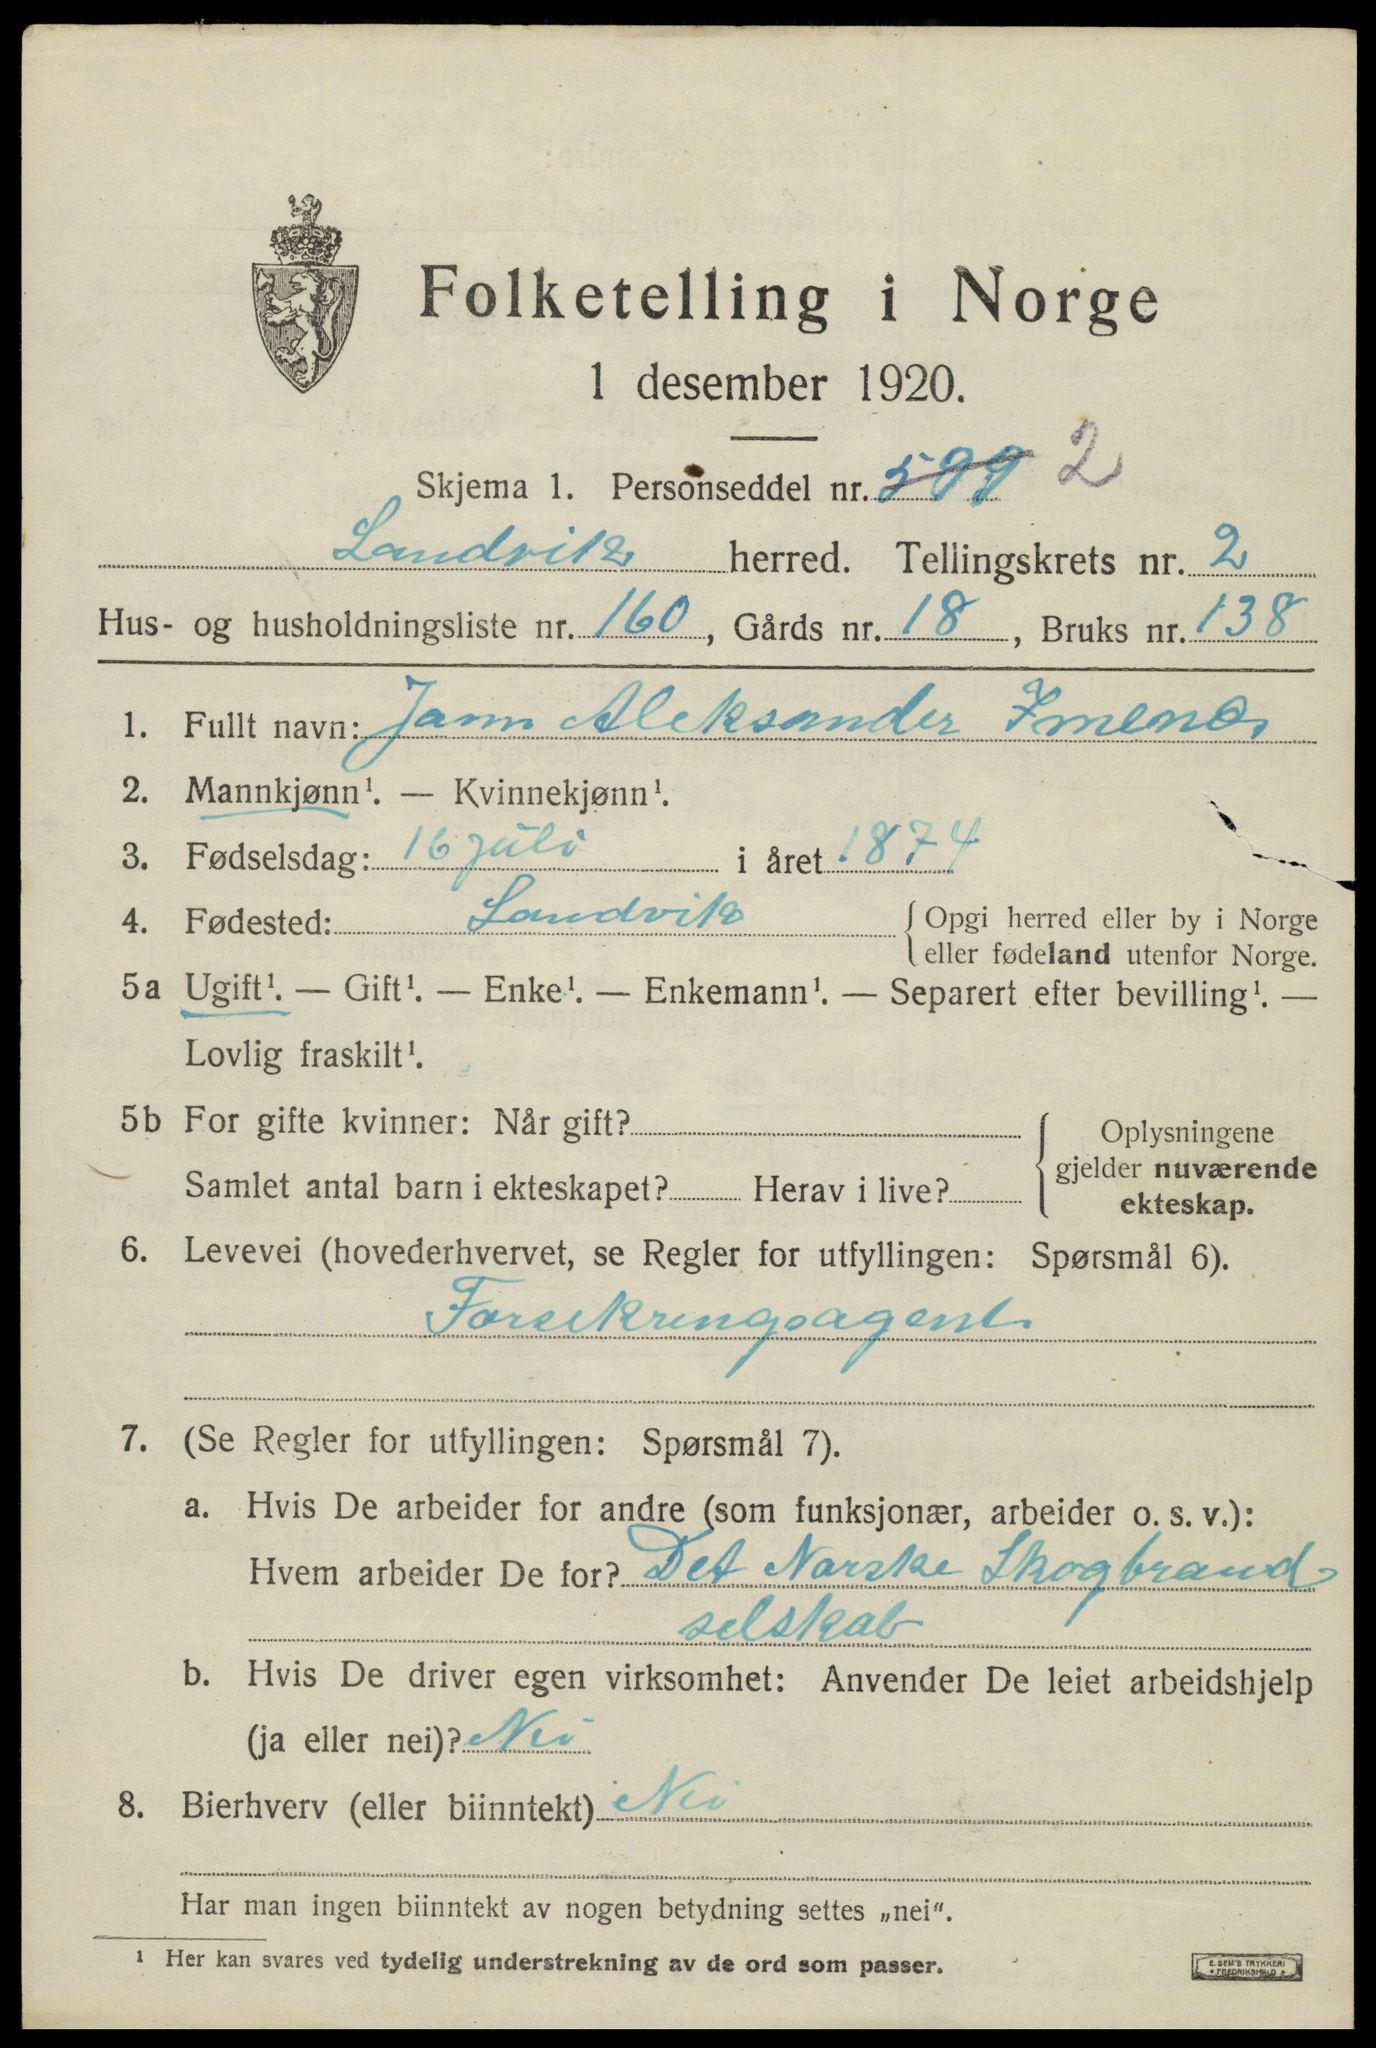 Folketelling i Norge
1 desember 1920.
Skjema 1. Personseddel nr. 599 2
Landvik herred. Tellingskrets nr. 2
Hus- og husholdningsliste nr. 160, Gårds nr. 18, Bruks nr. 138
1. Fullt navn: Jann Aleksander
2. Mannkjønn¹. — Kvinnekjønn¹.
3. Fødselsdag: 16 juli i året 1874
4. Fødested: Landvik { Opgi herred eller by i Norge
eller fødeland utenfor Norge.
5a Ugift¹. — Gift¹. — Enke¹. — Enkemann¹. — Separert efter bevilling¹. —
Lovlig fraskilt¹.
5b For gifte kvinner: Når gift?
Samlet antal barn i ekteskapet? Herav i live?
Oplysningene
gjelder nuværende
ekteskap.
6. Levevei (hovederhvervet, se Regler for utfyllingen: Spørsmål 6).
Forsekringsagent
7. (Se Regler for utfyllingen: Spørsmål 7).
a. Hvis De arbeider for andre (som funksjonær, arbeider o. s. v.):
Hvem arbeider De for? Det Norske Skogbrand
selskab
b. Hvis De driver egen virksomhet: Anvender De leiet arbeidshjelp
(ja eller nei)? Nei
8. Bierhverv (eller biinntekt) Nei
Har man ingen biinntekt av nogen betydning settes „nei“.
¹ Her kan svares ved tydelig understrekning av de ord som passer.
E. SEM'S TRYKKERI
FREDRIKSHALD